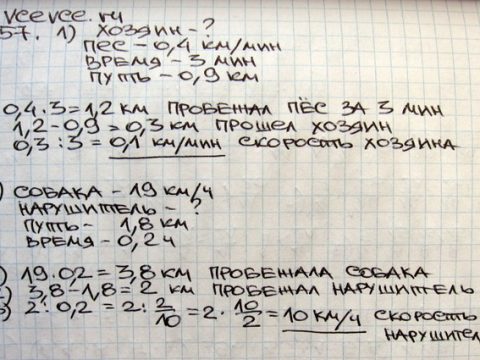 veevee.ru
57. 1) ХОЗЯИН - ?
ПЕС - 0,4 КМ/МИН
ВРЕМЯ - 3 МИН
ПУТЬ - 0,9 КМ
0,4 · 3 = 1,2 КМ ПРОБЕЖАЛ ПЁС ЗА 3 МИН
1,2 - 0,9 = 0,3 КМ ПРОШЕЛ ХОЗЯИН
0,3 : 3 = 0,1 КМ/МИН СКОРОСТЬ ХОЗЯИНА
) СОБАКА - 19 КМ/Ч
НАРУШИТЕЛЬ - ?
ПУТЬ - 1,8 КМ
ВРЕМЯ - 0,2 Ч
) 19 · 02 = 3,8 КМ ПРОБЕЖАЛА СОБАКА
) 3,8 - 1,8 = 2 КМ ПРОБЕЖАЛ НАРУШИТЕЛЬ
) 2 : 0,2 = 2 : 2/10 = 2 · 10/2 = 10 КМ/Ч СКОРОСТЬ
НАРУШИТЕЛ